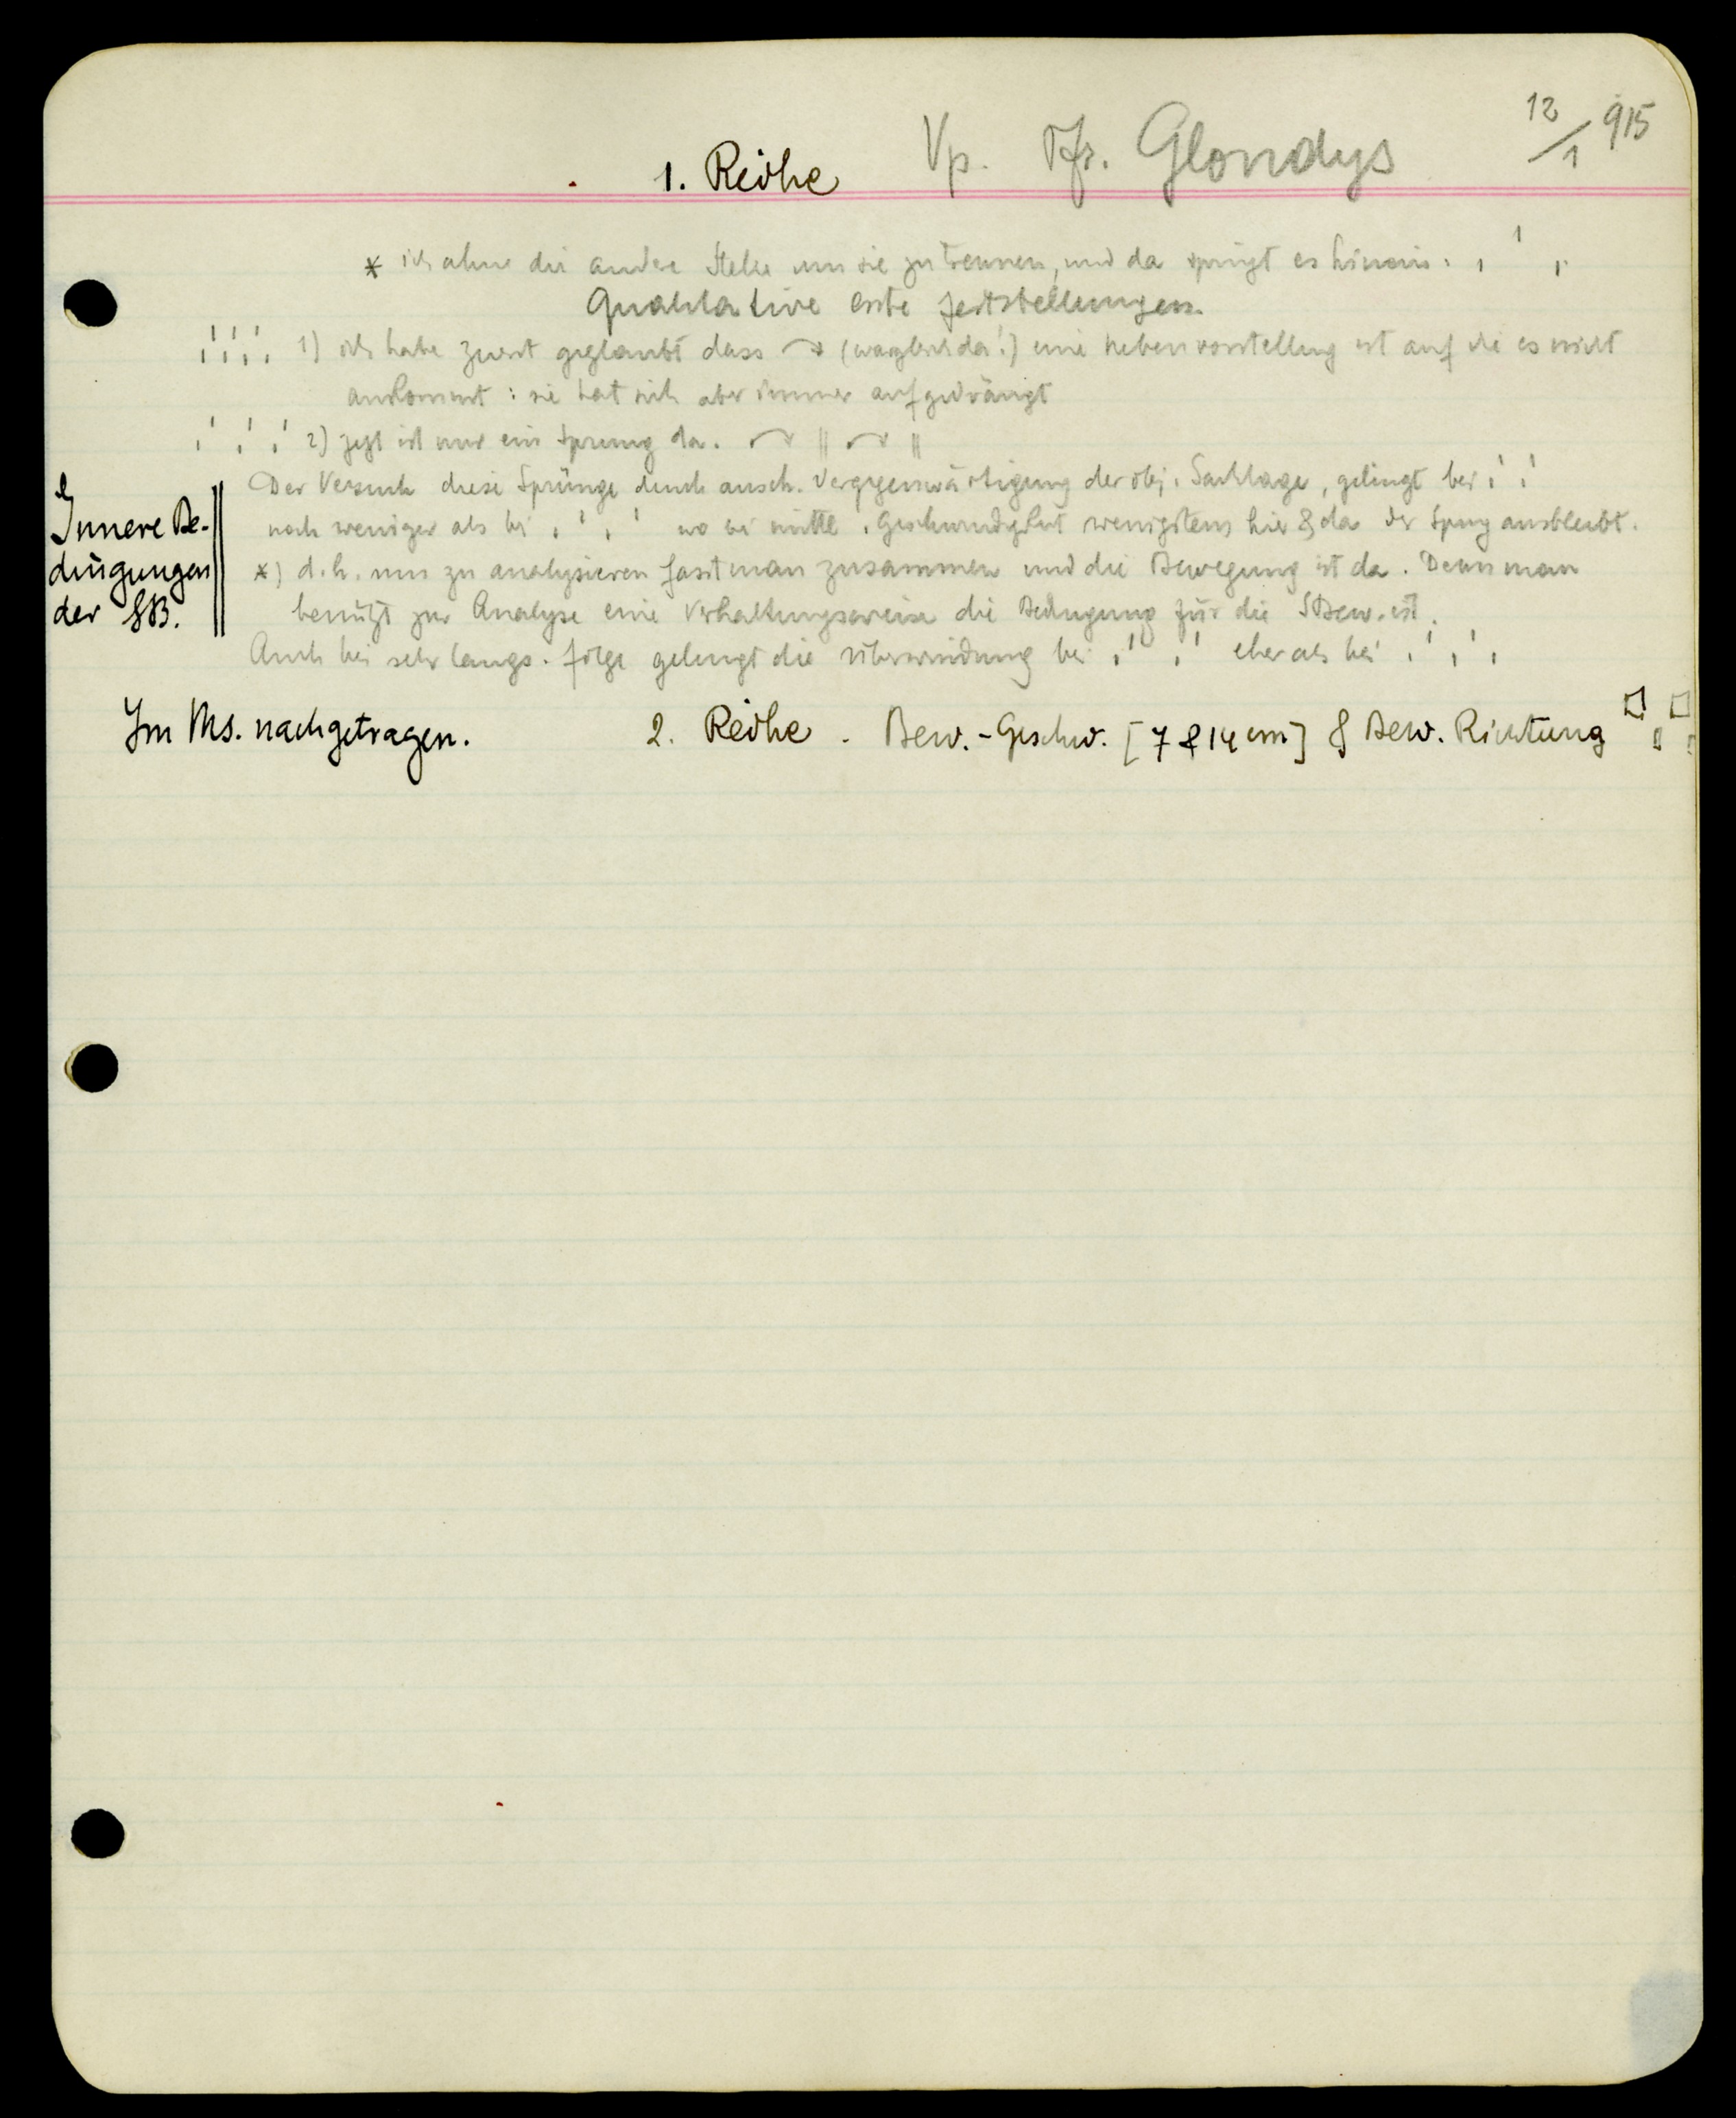 1. Reihe Vp. Pfr. Glondys 12/1 915
* ich ahne die andere Stelle um sie zu trennen, und da springt es hinein.
Qualitative erste Feststellungen
1) ich habe zuerst geglaubt dass ↷ (war gleich da!) eine Nebenvorstellung ist auf die es nicht
ankommt : sie hat sich aber immer aufgedrängt
2) jetzt ist nur ein Sprung da. ↷ || ↷ ||
Der Versuch diese Sprünge durch ansch. Vergegenwärtigung der obj. Sachlage, gelingt bei
noch weniger als bei wo bei mittl. Geschwindigkeit wenigstens hie & da der Sprung ausbleibt.
Innere Be-
dingungen
der SB.
*) d.h. um zu analysieren fasst man zusammen und die Bewegung ist da. Denn man
benützt zur Analyse eine Verhaltungsweise die Bedingung für die SBew. ist.
Auch bei sehr langs. Folge gelingt die Überwindung bei eher als bei
Im Ms. nachgetragen. 2. Reihe . Bew.-Geschw. [7 & 14 cm] & Bew. Richtung